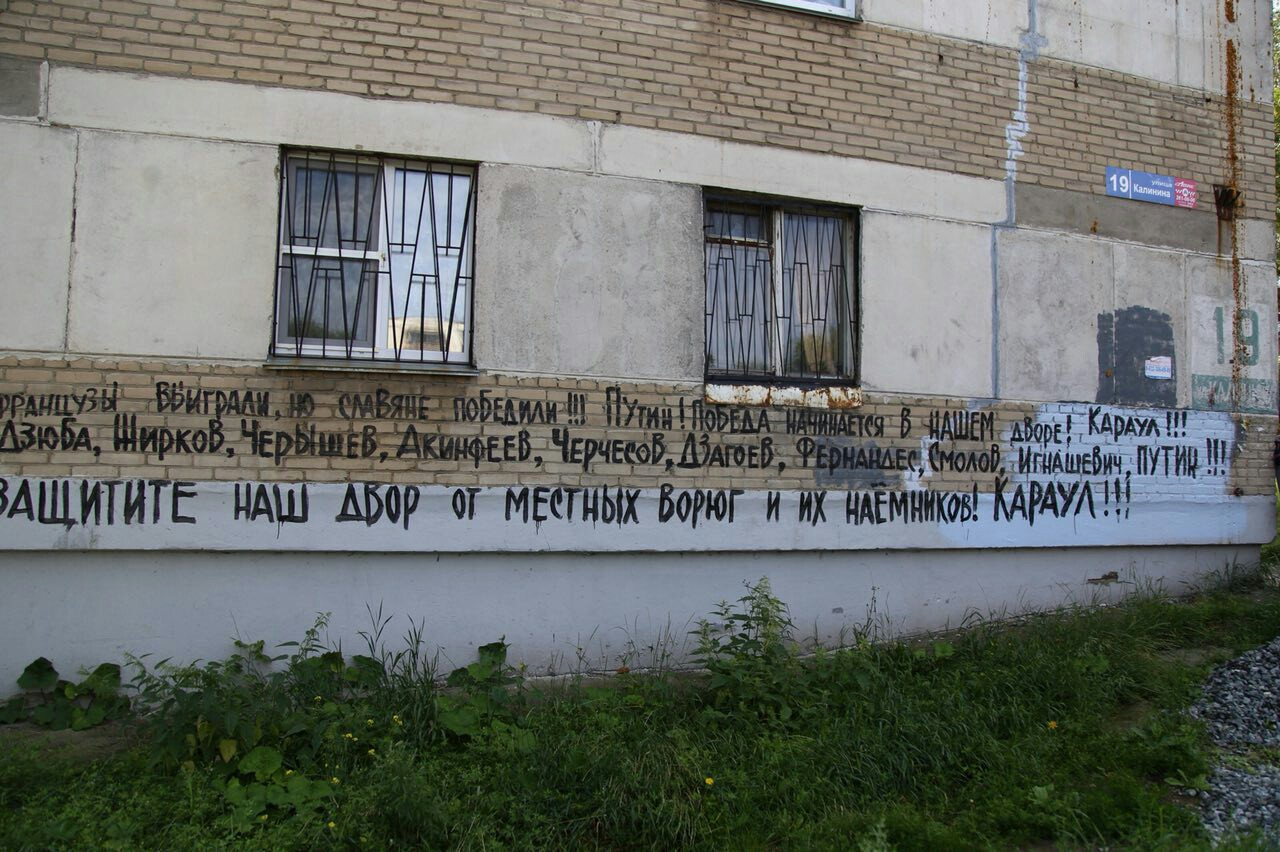 19 улица Калинина
19
ФРАНЦУЗЫ ВЫИГРАЛИ, НО СЛАВЯНЕ ПОБЕДИЛИ!!! ПУТИН! ПОБЕДА НАЧИНАЕТСЯ В НАШЕМ ДВОРЕ! КАРАУЛ!!!
ДЗЮБА, ЖИРКОВ, ЧЕРЫШЕВ, АКИНФЕЕВ, ЧЕРЧЕСОВ, ДЗАГОЕВ, ФЕРНАНДЕС, СМОЛОВ, ИГНАШЕВИЧ, ПУТИН!!!
ЗАЩИТИТЕ НАШ ДВОР ОТ МЕСТНЫХ ВОРЮГ И ИХ НАЕМНИКОВ! КАРАУЛ!!!